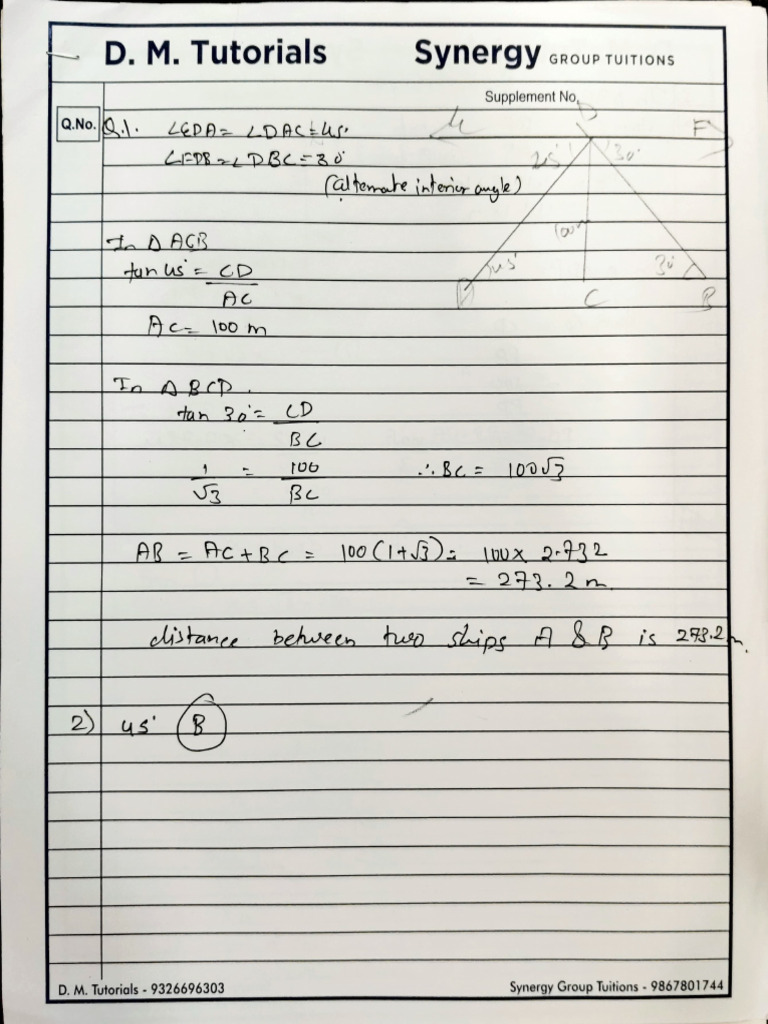 D. M. Tutorials Synergy GROUP TUITIONS
Supplement No.
Q.No. Q.1. ∠EDA = ∠DAC = 45°
∠FDB = ∠DBC = 30°
(alternate interior angle)
D F
45° 30°
100m
45° 30°
A C B
In Δ ACB
tan 45° = CD
AC
AC = 100 m
In Δ BCD.
tan 30° = CD
BC
1 = 100 ∴ BC = 100√3
√3 BC
AB = AC + BC = 100(1+√3) = 100 x 2.732
= 273.2 m
distance between two ships A & B is 273.2 m.
2) 45° B
D. M. Tutorials - 9326696303 Synergy Group Tuitions - 9867801744